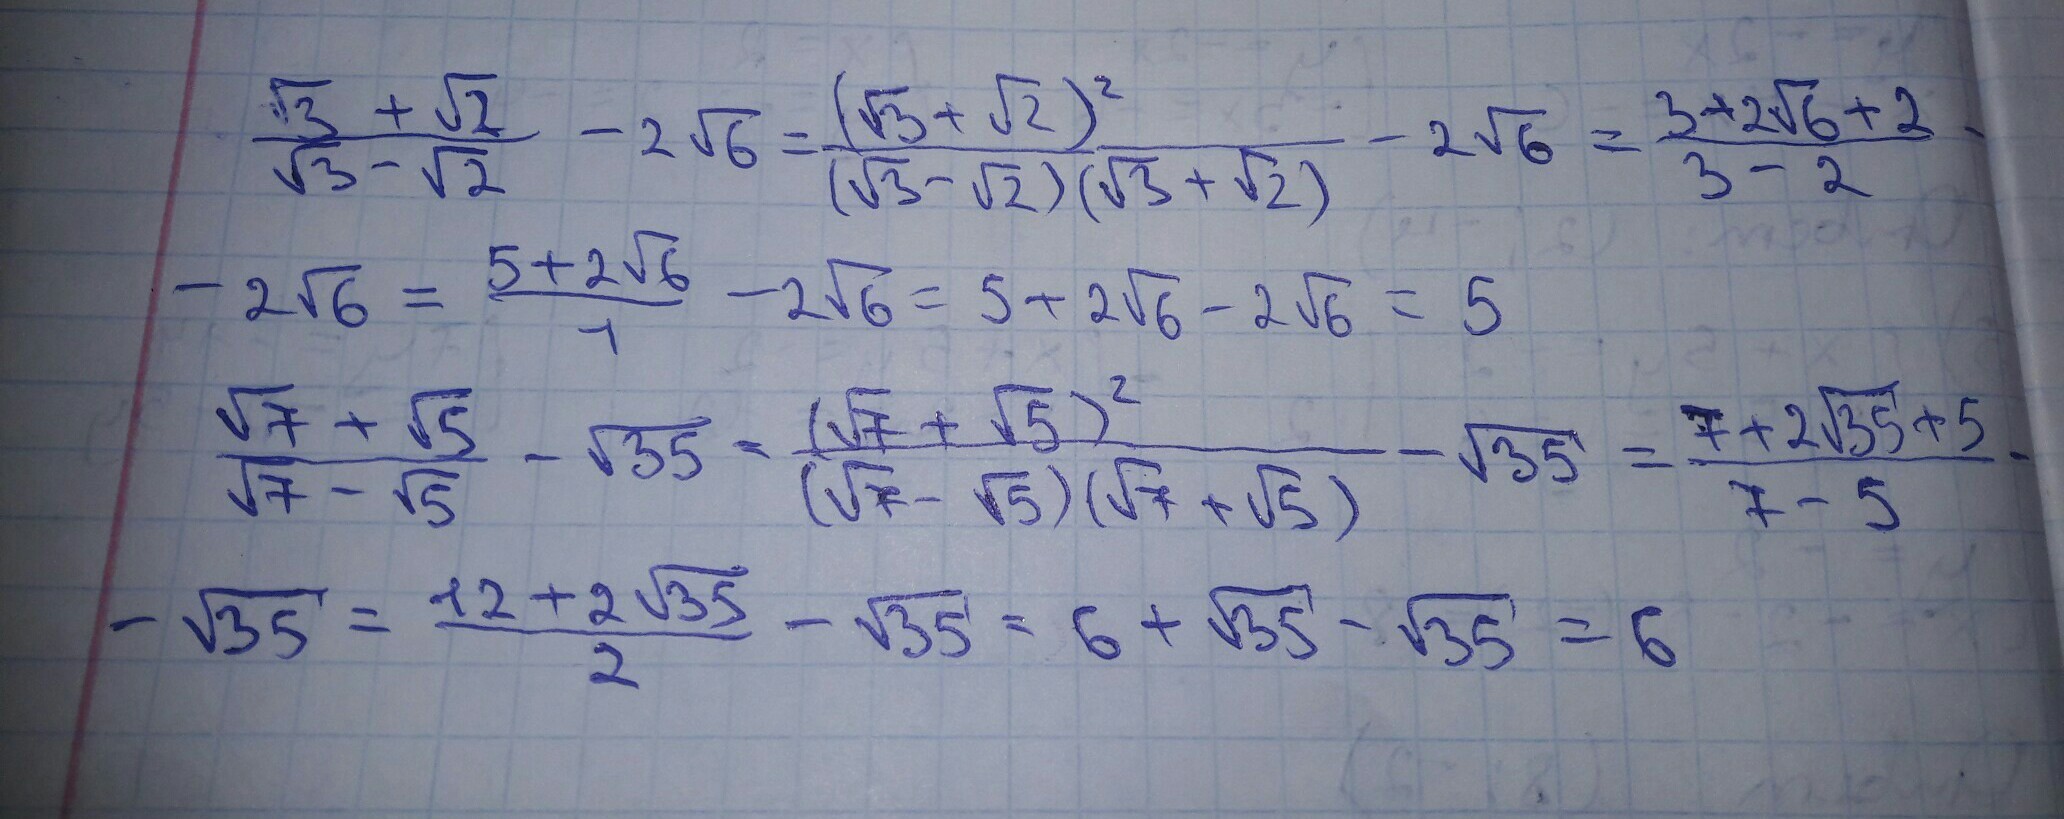 (√3 + √2)/(√3 - √2) - 2√6 = (√3 + √2)²/((√3 - √2)(√3 + √2)) - 2√6 = (3 + 2√6 + 2)/(3 - 2) -
- 2√6 = (5 + 2√6)/1 - 2√6 = 5 + 2√6 - 2√6 = 5
(√7 + √5)/(√7 - √5) - √35 = (√7 + √5)²/((√7 - √5)(√7 + √5)) - √35 = (7 + 2√35 + 5)/(7 - 5) -
- √35 = (12 + 2√35)/2 - √35 = 6 + √35 - √35 = 6